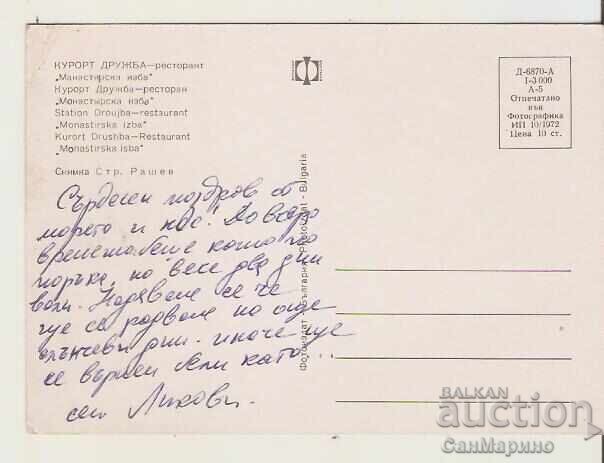 КУРОРТ ДРУЖБА—ресторант
„Манастирска изба"
Курорт Дружба—ресторан
„Монастырска изба"
Station Droujba—restaurant
„Monastirska izba"
Kurort Drushba—Restaurant
„Monastirska isba"
Снимка Стр. Рашев
Д-6870-А
I-3000
А-5
Отпечатано
във
Фотографика
ИП 10/1972
Цена 10 ст.
Фотоиздат · България · Photoizdat · Bulgaria
Сърдечен поздрав от
морето и нас! До вчера
времето беше като по
поръка, но весе два дни
вали. Надяваме се че
ще се радваме на още
слънчеви дни. иначе ще
се върнем бели като...
сем. Личови.
BALKAN
auction
СанМарино